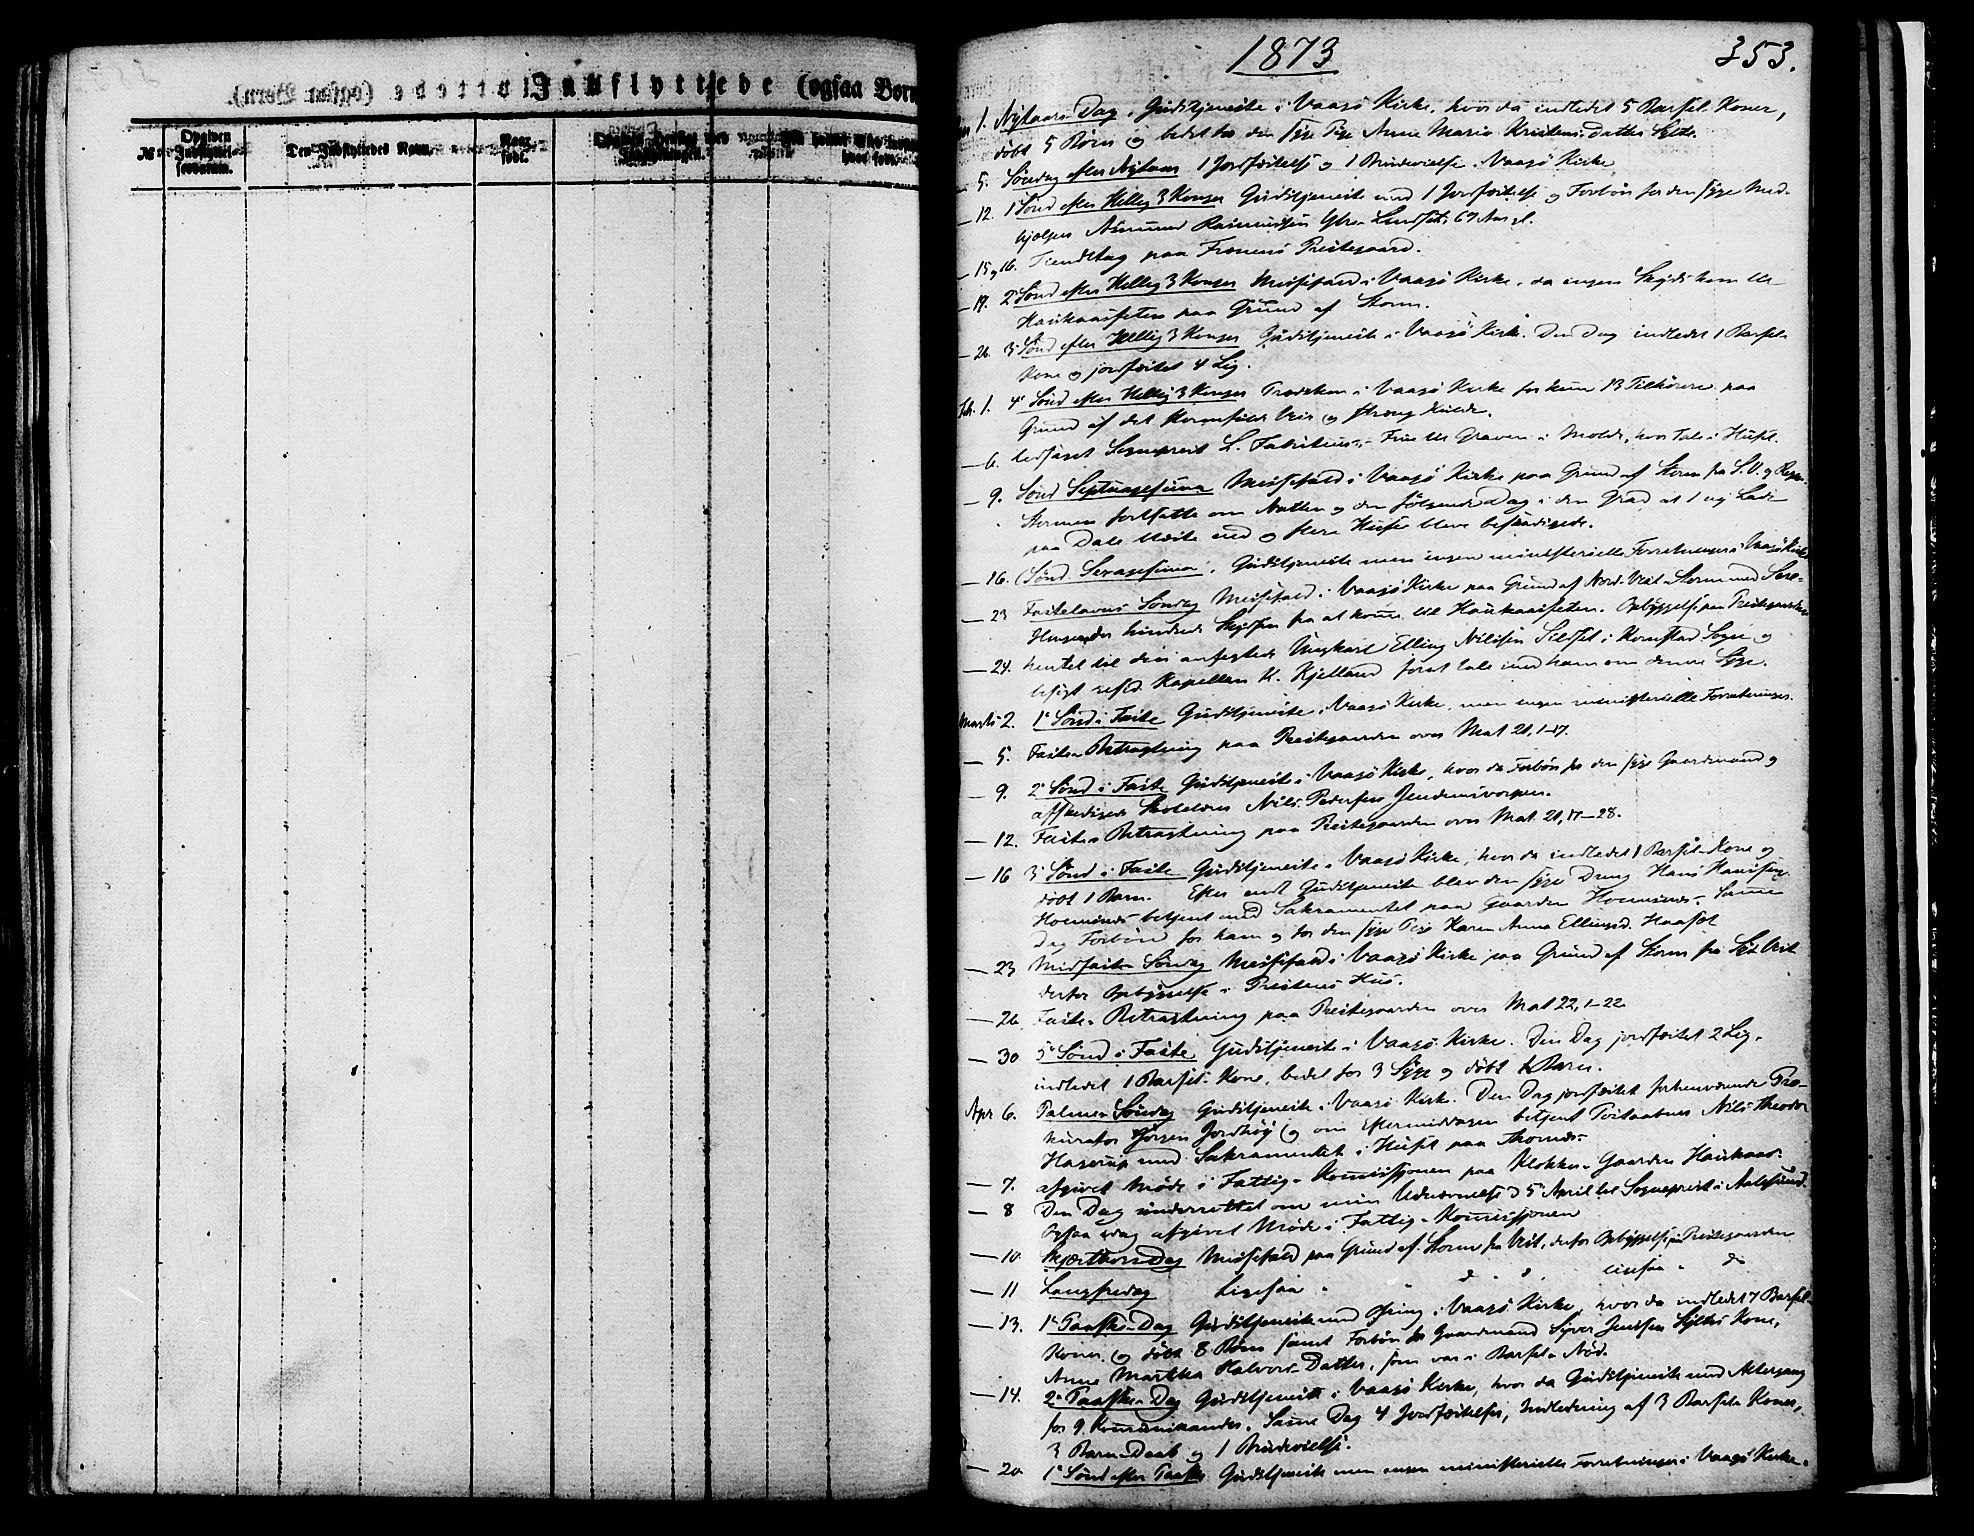 Indflyttede (ogsaa Børn
No
Opgiven Indflytnings-
Den Indflyttedes Navn.
Naar født.
1873
353.
1. Nytaars Dag, Gudstjeneste i Vaagø Kirke, hvor da indledet 5 Barsel-Koner,
døbt 5 Børn og bedet for den syge Pige Anne Marie Kristens-Datter
— 5. Søndag efter Nytaar 1 Jordfæstelse og 1 Brudevielse. Vaagø Kirke
— 12. 1ste Sønd efter Hellig 3 Konger Gudstjeneste med 1 Jordfæstelse og Forbøn for den syge Med-
hjælper Asmund Rasmussen Ytre- 67 Aar gl.
— 15 og 16. Tiendetag paa Frænens Præstegaard.
— 19. 2 Sønd efter Hellig 3 Konger Messefald i Vaagø Kirke, da ingen Skyds kom til
Haukaasseten paa Grund af Storm.
— 26. 3 Sønd efter Hellig 3 Konger Gudstjeneste i Vaagø Kirke. Den Dag indledet 1 Barsel-
Kone og jordfæstet 4 Lig.
Feb. 1. 4 Sønd efter Hellig 3 Konger Præken i Vaagø Kirke for kun 13 Tilhørere paa
Grund af det stormfulde Veir og stræng Kulde.
— 6. ledsaget Sogneprest L. Fabritius's Frue til Graven i Molde, hvor Tale i Huset.
— 9. Sønd Septuagesima Messefald i Vaagø Kirke paa Grund af Storm fra S.V. og Regn.
Stormen fortsatte om Natten og den følgende Dag i den Grad at 1 ny Lade
paa Dale blæste ned og flere Huse bleve beskadigede.
— 16. Sønd. Sexagesima. Gudstjeneste men ingen ministerielle Forretninger i Vaagø Kirke
— 23 Fastelavns Søndag Messefald i Vaagø Kirke paa Grund af Nord-Vest-Storm med
hindrede Skydsen fra at komme til Haukaasseten. Opbyggelse paa Præstegaarden
— 24. hentet til den anfægtede Ungkarl Elling Nilssen i Kornstad Sogn og
Kapellan K. Kjelland først tale med ham om denne Syge.
Marts 2. 1 Sønd i Faste Gudstjeneste i Vaagø Kirke, men ingen ministerielle Forretninger.
— 5. Faste-Betragtning paa Præstegaarden over Mat 21,1-17.
— 9. 2 Sønd i Faste Gudstjeneste i Vaagø Kirke, hvor da Forbøn for den syge Gaardmand og
affskedigede Skolelærer Nils Pedersen
— 12. Faste-Betragtning paa Præstegaarden over Mat. 21,17—28.
— 16 3 Sønd i Faste Gudstjeneste i Vaagø Kirke, hvor da indledet 1 Barsel-Kone og
døbt 1 Barn. Efter endt Gudstjeneste blev den syge Dreng Hans Hansen
betjent med Sakramentet paa Gaarden Samme
Dag Forbøn for ham og for den syge Pige Karen Anna Ellingsd. Haaset
— 23 Midfaste Søndag Messefald i Vaagø Kirke paa Grund af Storm fra Syd Vest
derfor Opbyggelse i Præstens Hus.
— 26 Faste-Betragtning paa Præstegaarden over Mat 22,1-22
— 30 5 Sønd i Faste Gudstjeneste i Vaagø Kirke. Den Dag jordfæstet 2 Lig,
indledet 1 Barsel-Kone, bedet for 3 Syge og døbt 1 Barn.
Apr 6. Palme-Søndag Gudstjeneste i Vaagø Kirke. Den Dag jordfæstet forhenværende Pro-
kurator Jørgen Jordhøy og om Eftermiddagen betjent Postaabner Nils Theodor
Hagerup med Sakramentet i Huset paa Thornæs.
— 7. afgivet Møde i Fattig-Kommissjonen paa Klokker-Gaarden Haukaas.
— 8 Den Dag underrettet om min Udnævnelse d 5 April til Sogneprest i Aalesund.
Ogsaa idag afgivet Møde i Fattig-Kommissjonen
— 10 Skjærthors-Dag Messefald paa Grund af Storm fra Vest, derfor Opbyggelse paa Præstegaarden
— 11 Langfredag Ligesaa " d. d. ligesaa " do
— 13. 1 Paaske-Dag Gudstjeneste med Ofring i Vaagø Kirke, hvor da indledet 7 Barsel-
Koner og døbt 8 Børn samt Forbøn for Gaardmand Syver Jenssen Sylte's Kone,
Anne Martha Halvors-Datter, som var i Barsel-Nød.
— 14. 2 Paaske-Dag Gudstjeneste i Vaagø Kirke, hvor da Gudstjeneste med Altergang
for 9 Kommunikanter. Samme Dag 4 Jordfæstelser, Indledning af 3 Barsel-Koner,
3 Barne-Daab og 1 Brudevielse.
— 20 1 Sønd efter Paaske Gudstjeneste men ingen ministerielle Forretninger i Vaagø Kirke.